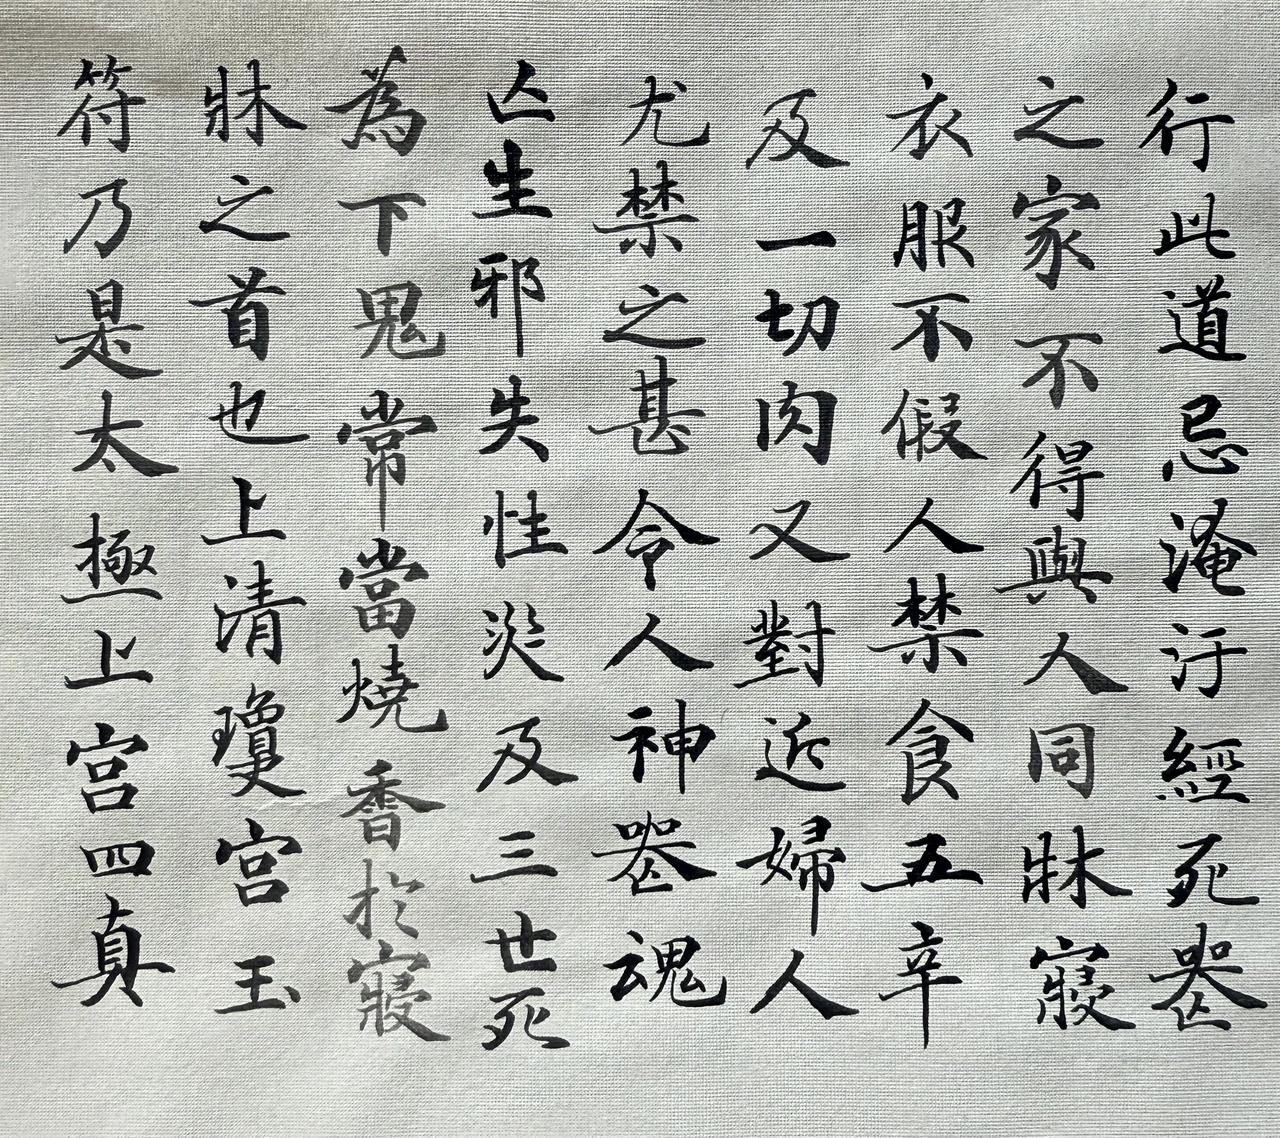 行此道忌淹汙經死喪
之家不得與人同牀寢
衣服不假人禁食五辛
及一切肉又對近婦人
尤禁之甚令人神喪魂
亡生邪失性災及三世死
為下鬼常當燒香於寢
牀之首也上清瓊宮玉
符乃是太極上宮四真